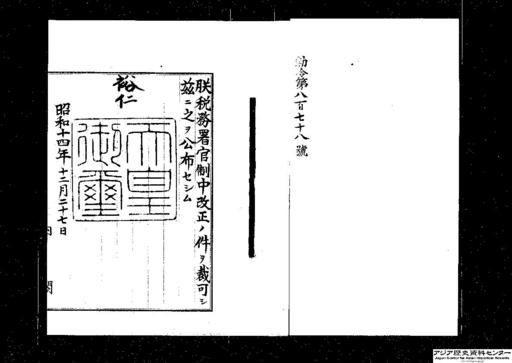 勅令第八百七十八號
朕税務署官制中改正ノ件ヲ裁可シ
玆ニ之ヲ公布セシム
裕仁
天皇御璽
昭和十四年十二月二十七日
内閣
アジア歴史資料センター
Japan Center for Asian Historical Records